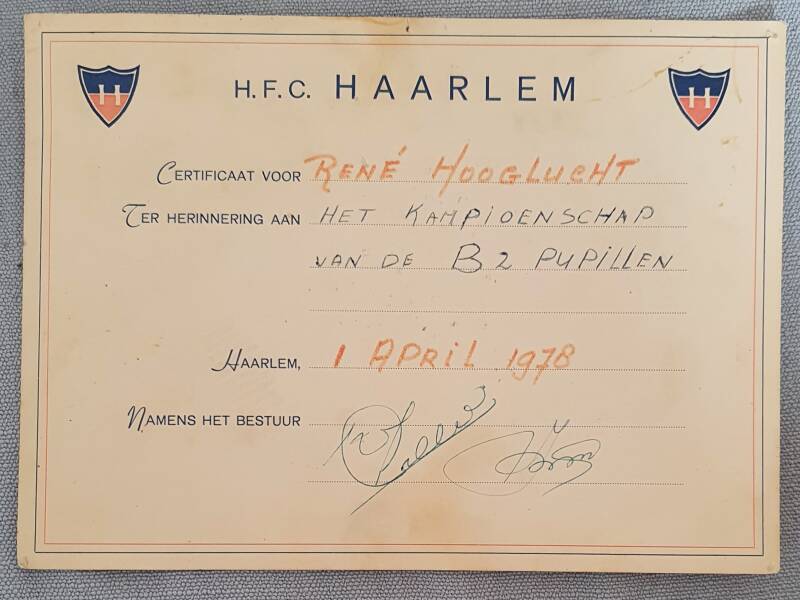 H H
H.F.C. HAARLEM
CERTIFICAAT VOOR RENÉ HOOGLUCHT
TER HERINNERING AAN HET KAMPIOENSCHAP
VAN DE B2 PUPILLEN
HAARLEM, 1 APRIL 1978
NAMENS HET BESTUUR